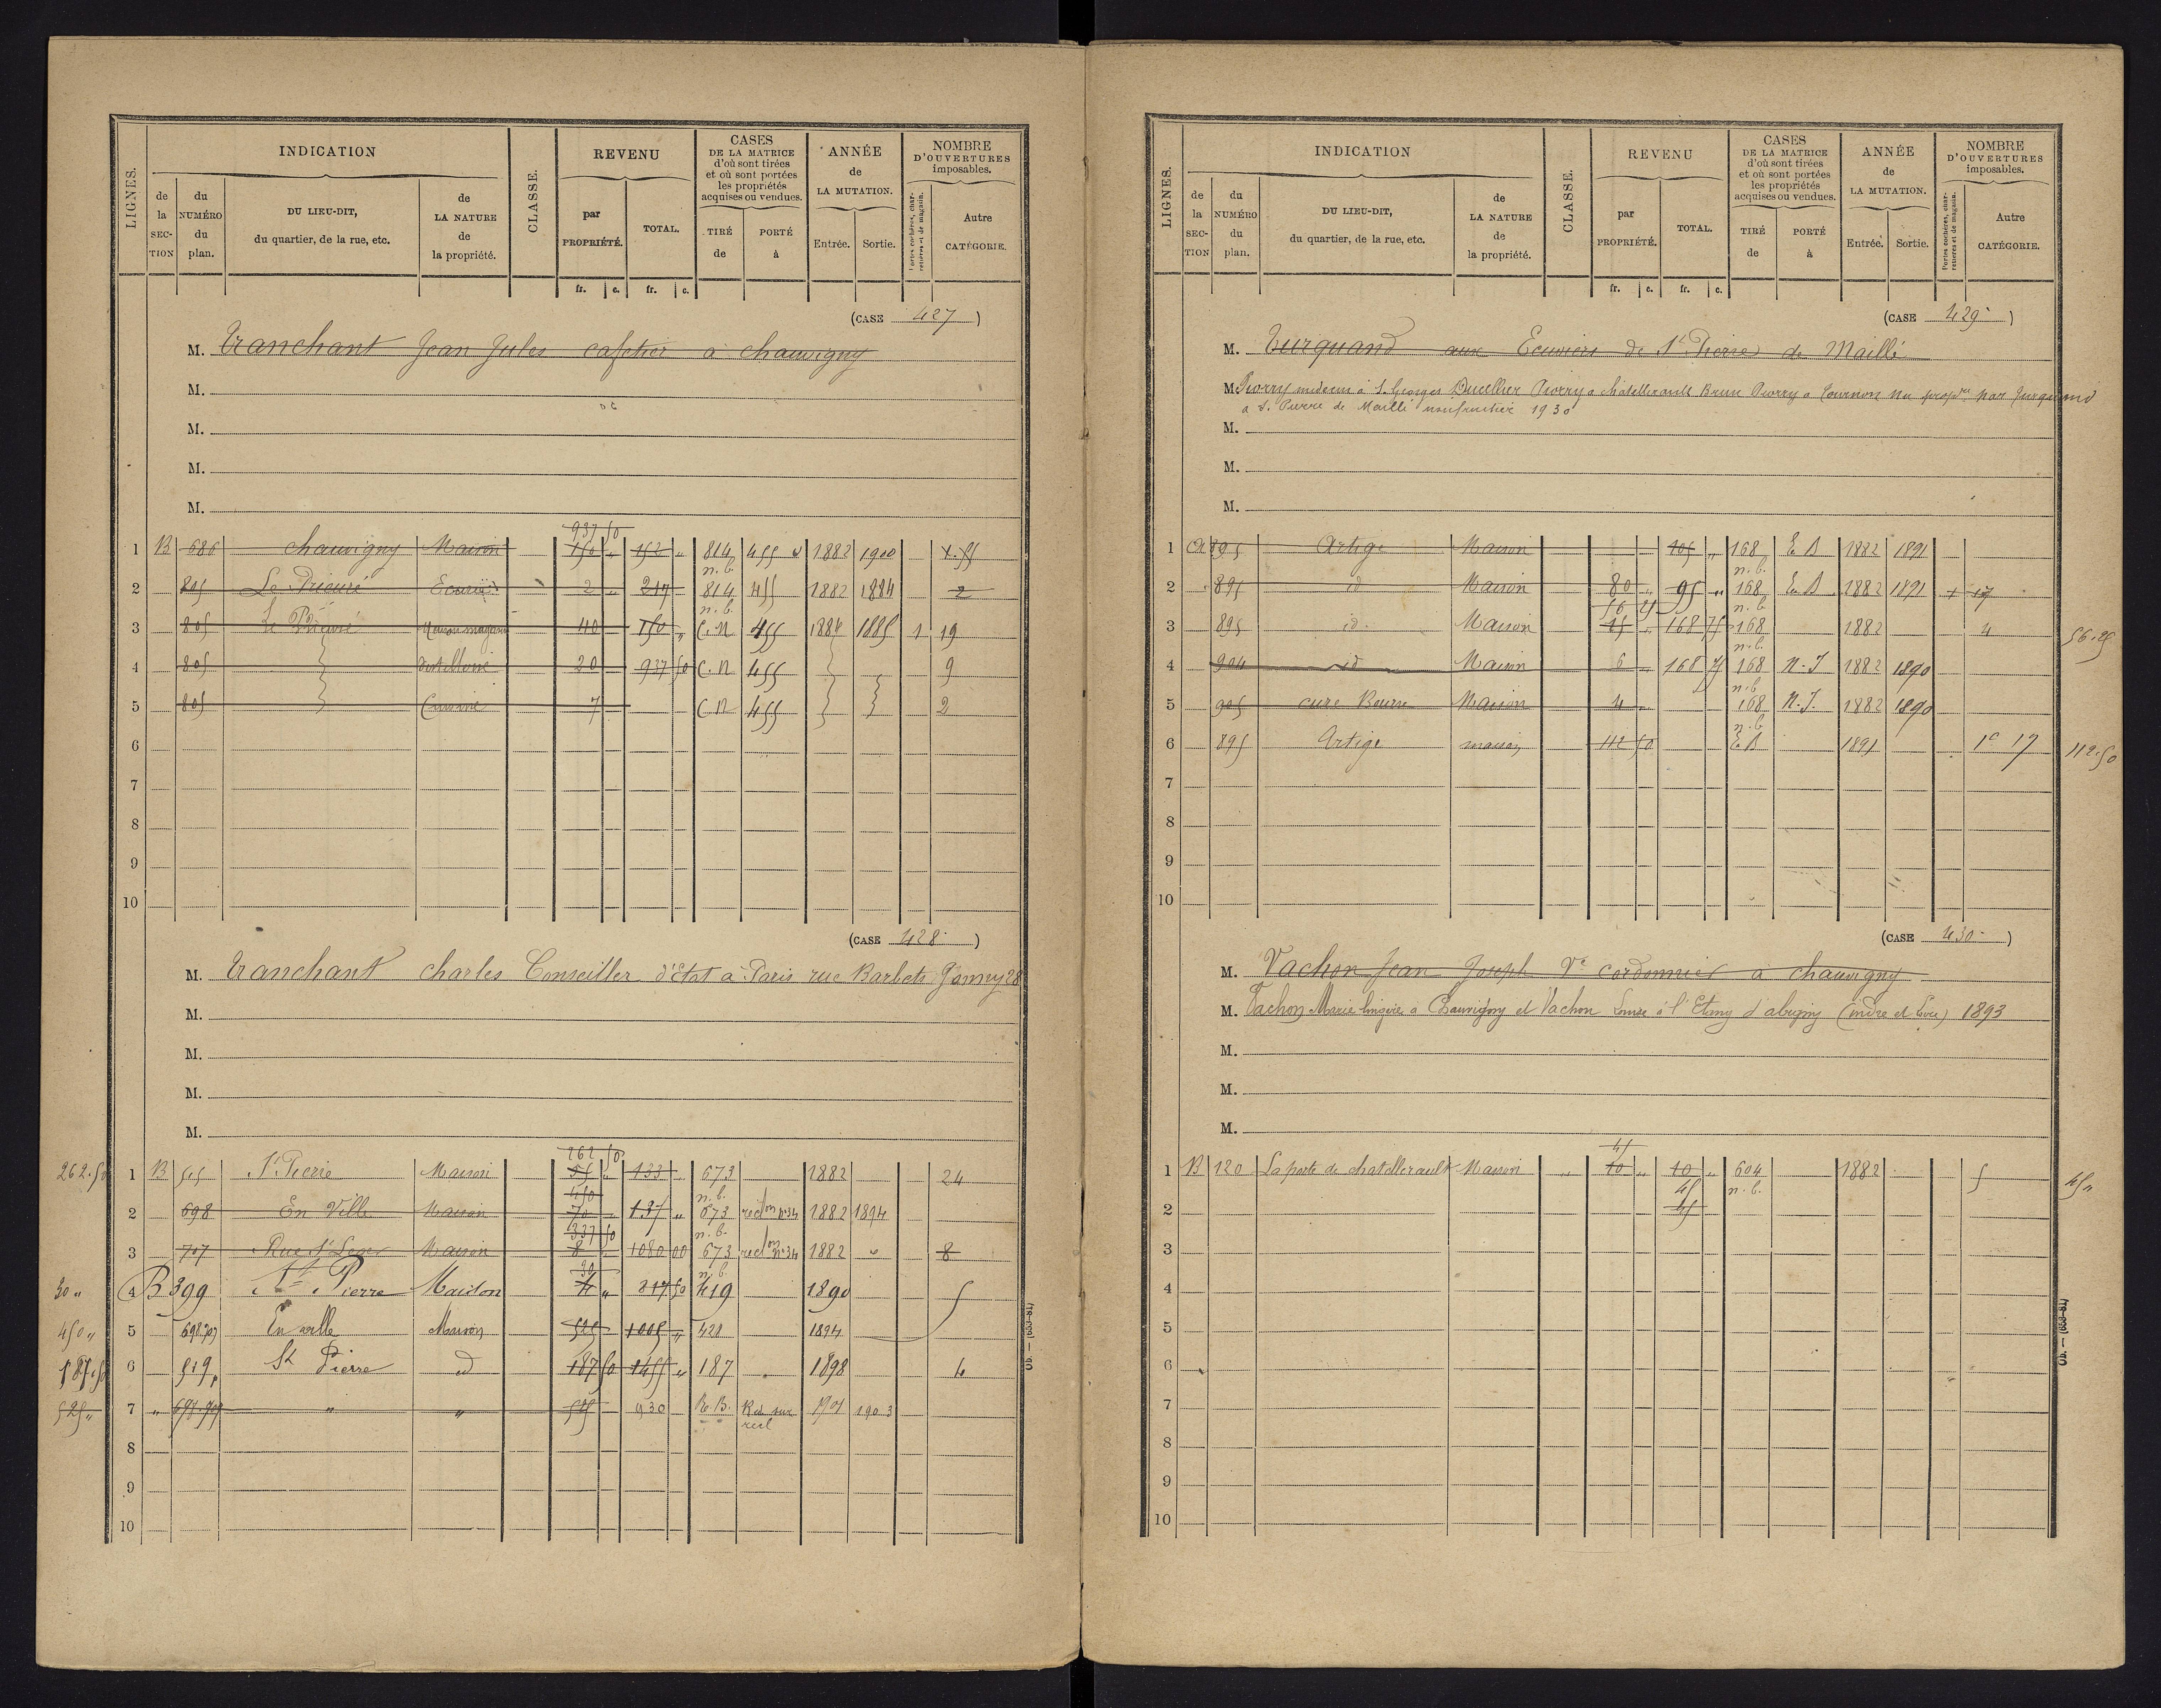 LIGNES. INDICATION CLASSE. REVENU CASES DE LA MATRICE d'où sont tirées et où sont portées les propriétés acquises ou vendues. ANNÉE de LA MUTATION. NOMBRE D'OUVERTURES imposables.
de la SECTION du NUMÉRO du plan. DU LIEU-DIT, du quartier, de la rue, etc. de LA NATURE de la propriété. par PROPRIÉTÉ. TOTAL. TIRÉ de PORTÉ à Entrée. Sortie. Portes cochères, charretières et de magasin. Autre CATÉGORIE.
fr. c. fr. c.
(CASE 427)
M. Tranchant Jean Jules cafetier à chauvigny
M.
M.
M.
M.
937 50
1 B 686 chauvigny Maison 150 " 152 " 814 455 1882 1900
n.b.
2 805 Le Prieuré Ecurie 2 " 217 814 455 1882 1884 2
n.b.
3 805 Le Prieuré Maison magasin 40 150 " C.N 455 1884 1885 1 19
4 805 distillerie 20 937 50 C.N 455 9
5 805 7 C N 455 2
6
7
8
9
10
(CASE 428)
M. Tranchant charles Conseiller d'Etat à Paris rue Barbet de Jouy 28
M.
M.
M.
M.
262 50
262.50 1 B 515 St Pierre Maison 55 " 133 " 673 1882 24
450 n.b.
2 698 En Ville Maison 70 137 " 673 recl on n° 34 1882 1894
337 50 n.b.
3 707 Rue St Léger Maison 8 1080 00 673 recl on n° 34 1882 " 8
30 n.b.
30 " 4 B 399 St Pierre Maison 4 " 817 50 419 1890 5
450 " 5 698.707 En ville Maison 525 1005 " 428 1894
187.50 6 519 St Pierre id 187 50 1455 " 187 1898 4
525 " 7 " 698.707 " " 525 930 R.B. Red sur recl 1901 1903
8
9
10
Ub. — (653-81)
LIGNES. INDICATION CLASSE. REVENU CASES DE LA MATRICE d'où sont tirées et où sont portées les propriétés acquises ou vendues. ANNÉE de LA MUTATION. NOMBRE D'OUVERTURES imposables.
de la SECTION du NUMÉRO du plan. DU LIEU-DIT, du quartier, de la rue, etc. de LA NATURE de la propriété. par PROPRIÉTÉ. TOTAL. TIRÉ de PORTÉ à Entrée. Sortie. Portes cochères, charretières et de magasin. Autre CATÉGORIE.
fr. c. fr. c.
(CASE 429)
M. Turquand aux Ecuviers de St Pierre de Maillé
M. Piorry médecin à S. Georges Ducellier Piorry à Châtellerault Brun Piorry à Tournon nu propre par Turquand
à S. Pierre de Maillé usufruitier 1930
M.
M.
M.
1 895 Artige Maison 105 " 168 E B 1882 1891
n.b.
2 895 id Maison 80 " 95 " 168 E B 1882 1891 + 17
56 25 n.b.
3 895 id. Maison 45 " 168 75 168 1882 4 56.25
n.b.
4 904 id Maison 6 " 168 75 168 N.I 1882 1890
n.b.
5 905 Maison 4 " 168 N.I. 1882 1890
n.b.
6 895 Artige maison 112 50 E B 1891 1c 17 112.50
7
8
9
10
(CASE 430)
M. Vachon Jean Joseph Ve cordonnier à chauvigny
M. Vachon Marie lingère à Chauvigny et Vachon Louise à l'Etang d'abigny (indre et Loire) 1893
M.
M.
M.
45
1 B 120 La porte de chatellerault Maison " 10 " 10 " 604 1882 5 45 "
45 n.b.
2 45
3
4
5
6
7
8
9
10
Ub. — (653-81)